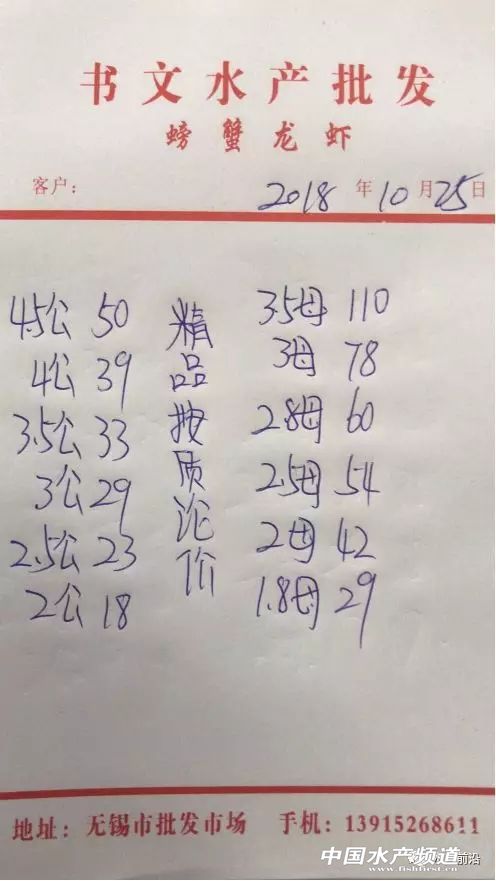 书文水产批发
螃蟹龙虾
客户： 2018年10月25日
4.5公 50
4公 39
3.5公 33
3公 29
2.5公 23
2公 18
精品按质论价
3.5母 110
3母 78
2.8母 60
2.5母 54
2母 42
1.8母 29
地址：无锡市批发市场 手机：13915268611
中国水产频道
www.fishfirst.cn
前沿